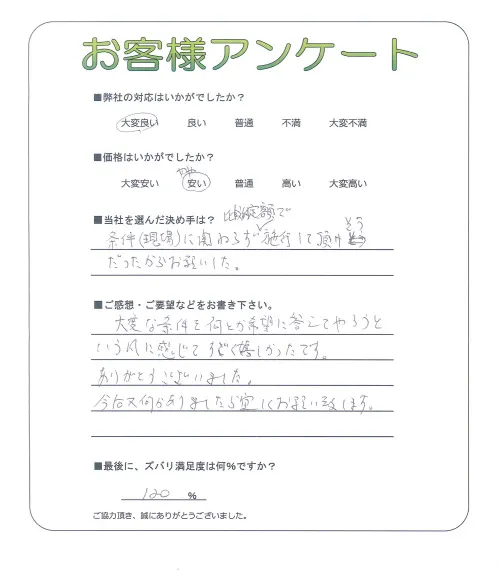 お客様アンケート
■弊社の対応はいかがでしたか？
大変良い 良い 普通 不満 大変不満
■価格はいかがでしたか？
やや
大変安い 安い 普通 高い 大変高い
■当社を選んだ決め手は？
額で
条件(現場)に関わらず施行して頂けそう
だったからお願いした。
■ご感想・ご要望などをお書き下さい。
大変な条件を何とか希望に答えてやろうと
いう風に感じてすごく嬉しかったです。
ありがとうございました。
今后又何かありましたら宜しくお願い致します。
■最後に、ズバリ満足度は何％ですか？
120 %
ご協力頂き、誠にありがとうございました。